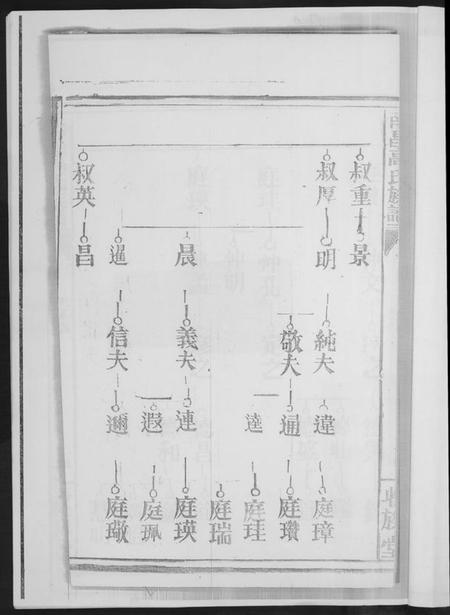 昌高氏族譜
叔重 景
叔厚 明 純夫 違 庭璋
敬夫 通 庭瓚
達 庭珪
庭瑞
晨 義夫 連 庭瑛
遐 庭珮
暹 信夫 邇 庭璥
叔英 昌
族堂